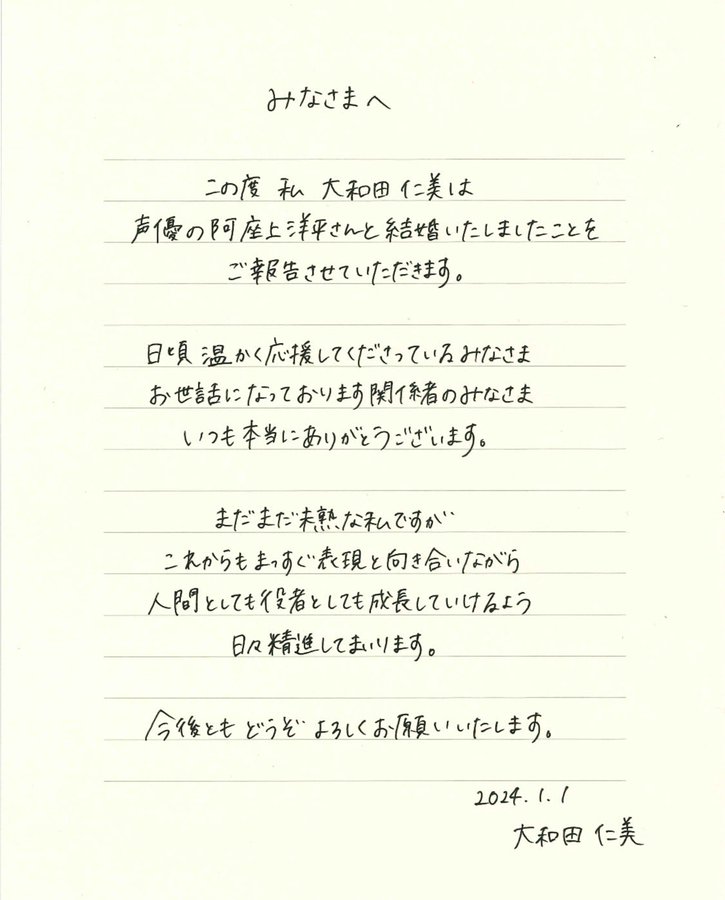 みなさまへ
この度 私 大和田 仁美は
声優の阿座上洋平さんと結婚いたしましたことを
ご報告させていただきます。
日頃 温かく応援してくださっているみなさま
お世話になっております関係者のみなさま
いつも本当にありがとうございます。
まだまだ未熟な私ですが
これからもまっすぐ表現と向き合いながら
人間としても役者としても成長していけるよう
日々精進してまいります。
今後とも どうぞ よろしくお願いいたします。
2024.1.1
大和田 仁美